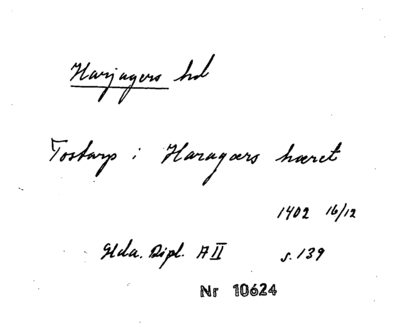 Harjagers hd
Tostarp i Haragærs hæret
1402 16/12
Glda. Dipl. A II s. 139
Nr 10624